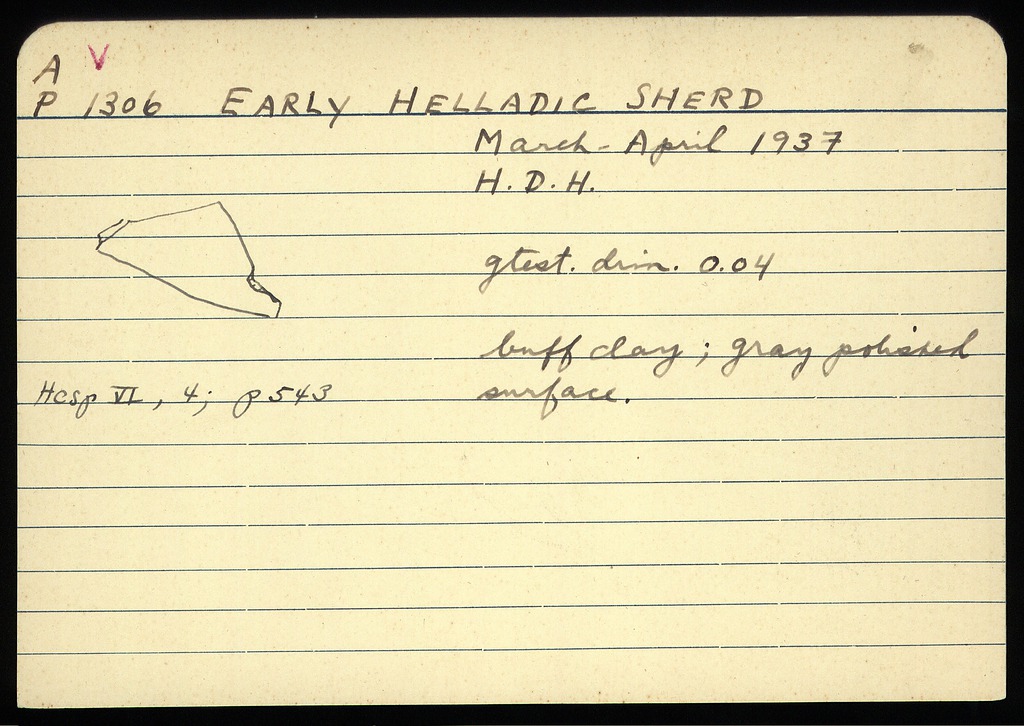 A V
P 1306 EARLY HELLADIC SHERD
March - April 1937
H.D.H.
gtest. dim. 0.04
buff clay; gray polished
surface.
Hesp VI, 4; p 543